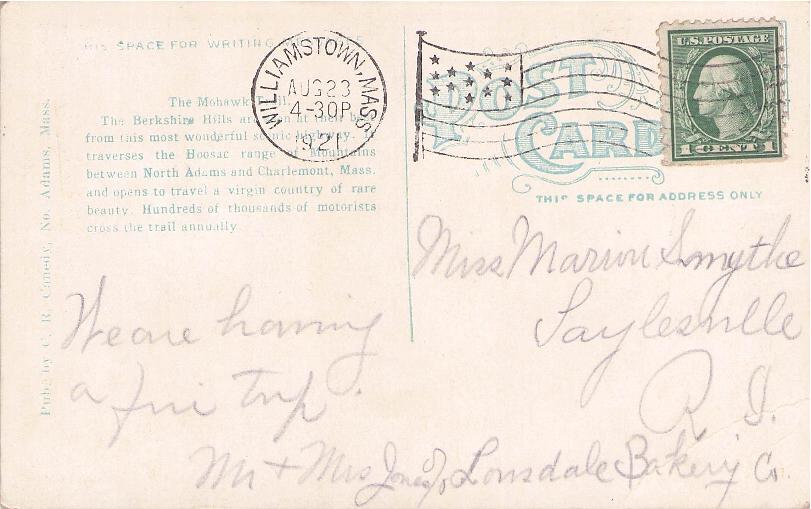 THIS SPACE FOR WRITING
WILLIAMSTOWN, MASS.
AUG 23
4-30P
192
POST
CARD
U.S. POSTAGE
1 CENT 1
THIS SPACE FOR ADDRESS ONLY
The Mohawk Trail.
The Berkshire Hills are seen at their best
from this most wonderful scenic highway. It
traverses the Hoosac range of Mountains
between North Adams and Charlemont, Mass.
and opens to travel a virgin country of rare
beauty. Hundreds of thousands of motorists
cross the trail annually.
Pub. by C. R. Canedy, No. Adams, Mass.
Miss Marion Smythe
Saylesville
R. I.
We are having
a fine trip.
Mr + Mrs Jones of Lonsdale Bakery Co.